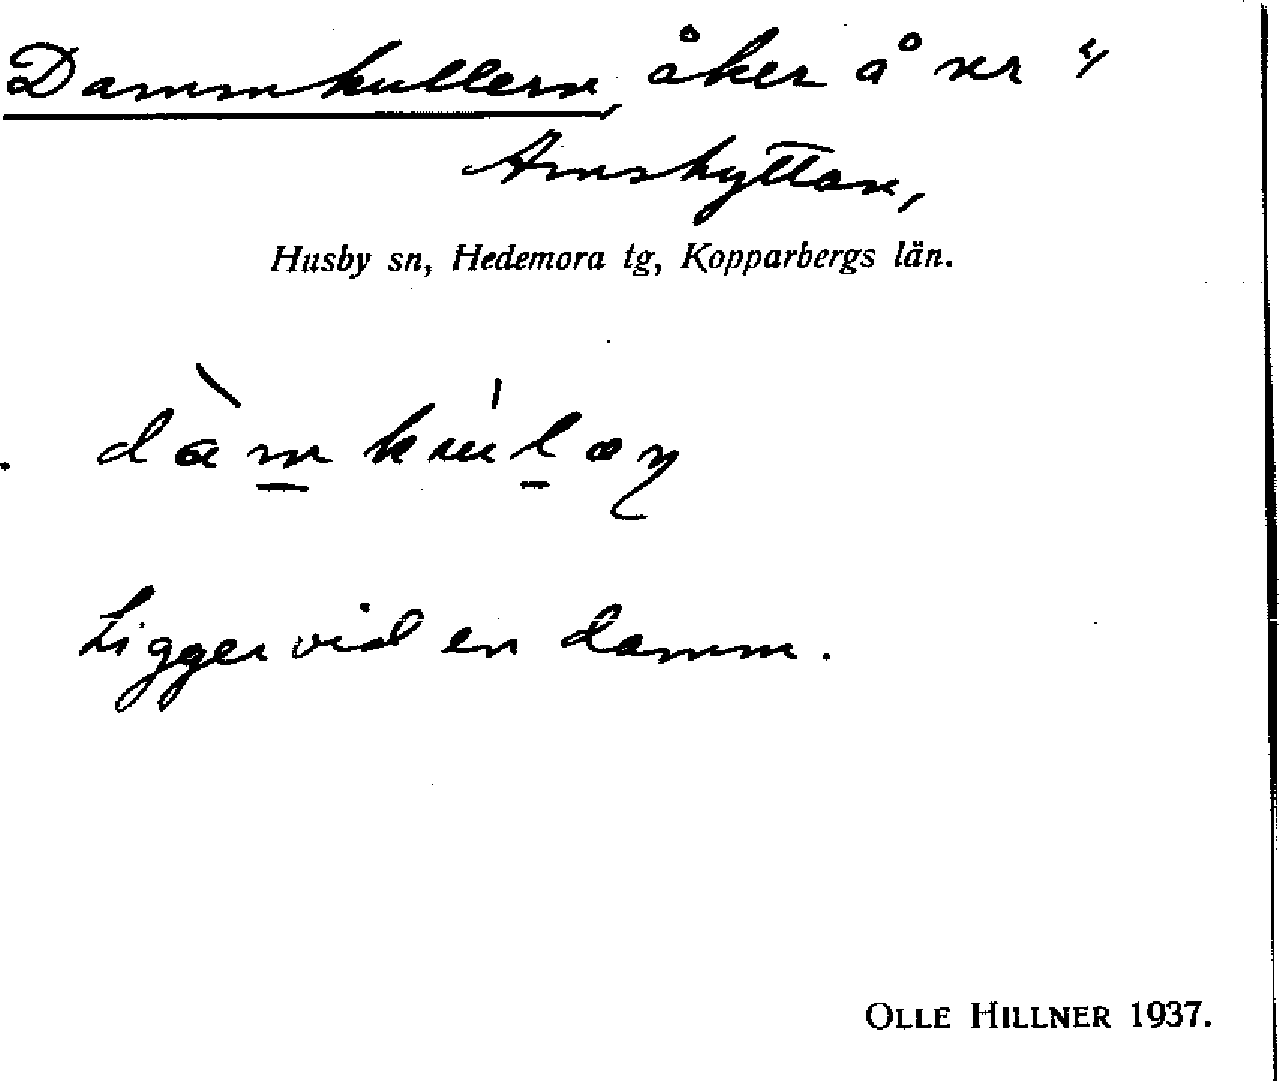 Dammkullern, åker å nr 4
Amshyttan,
Husby sn, Hedemora tg, Kopparbergs län.
Ligger vid en damm.
OLLE HILLNER 1937.